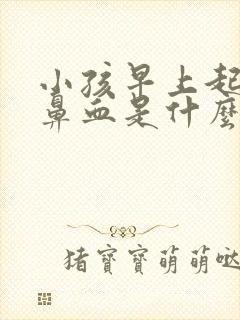 小孩早上起
鼻血是什麼
猪寶寶萌萌哒